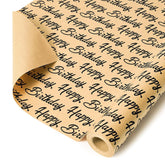 Happy Birthday Happy
Birthday Happy Birthday
Happy Birthday Happy Birthday
Happy Birthday Happy
Birthday Happy Birthday
Happy Birthday Happy
Birthday Happy